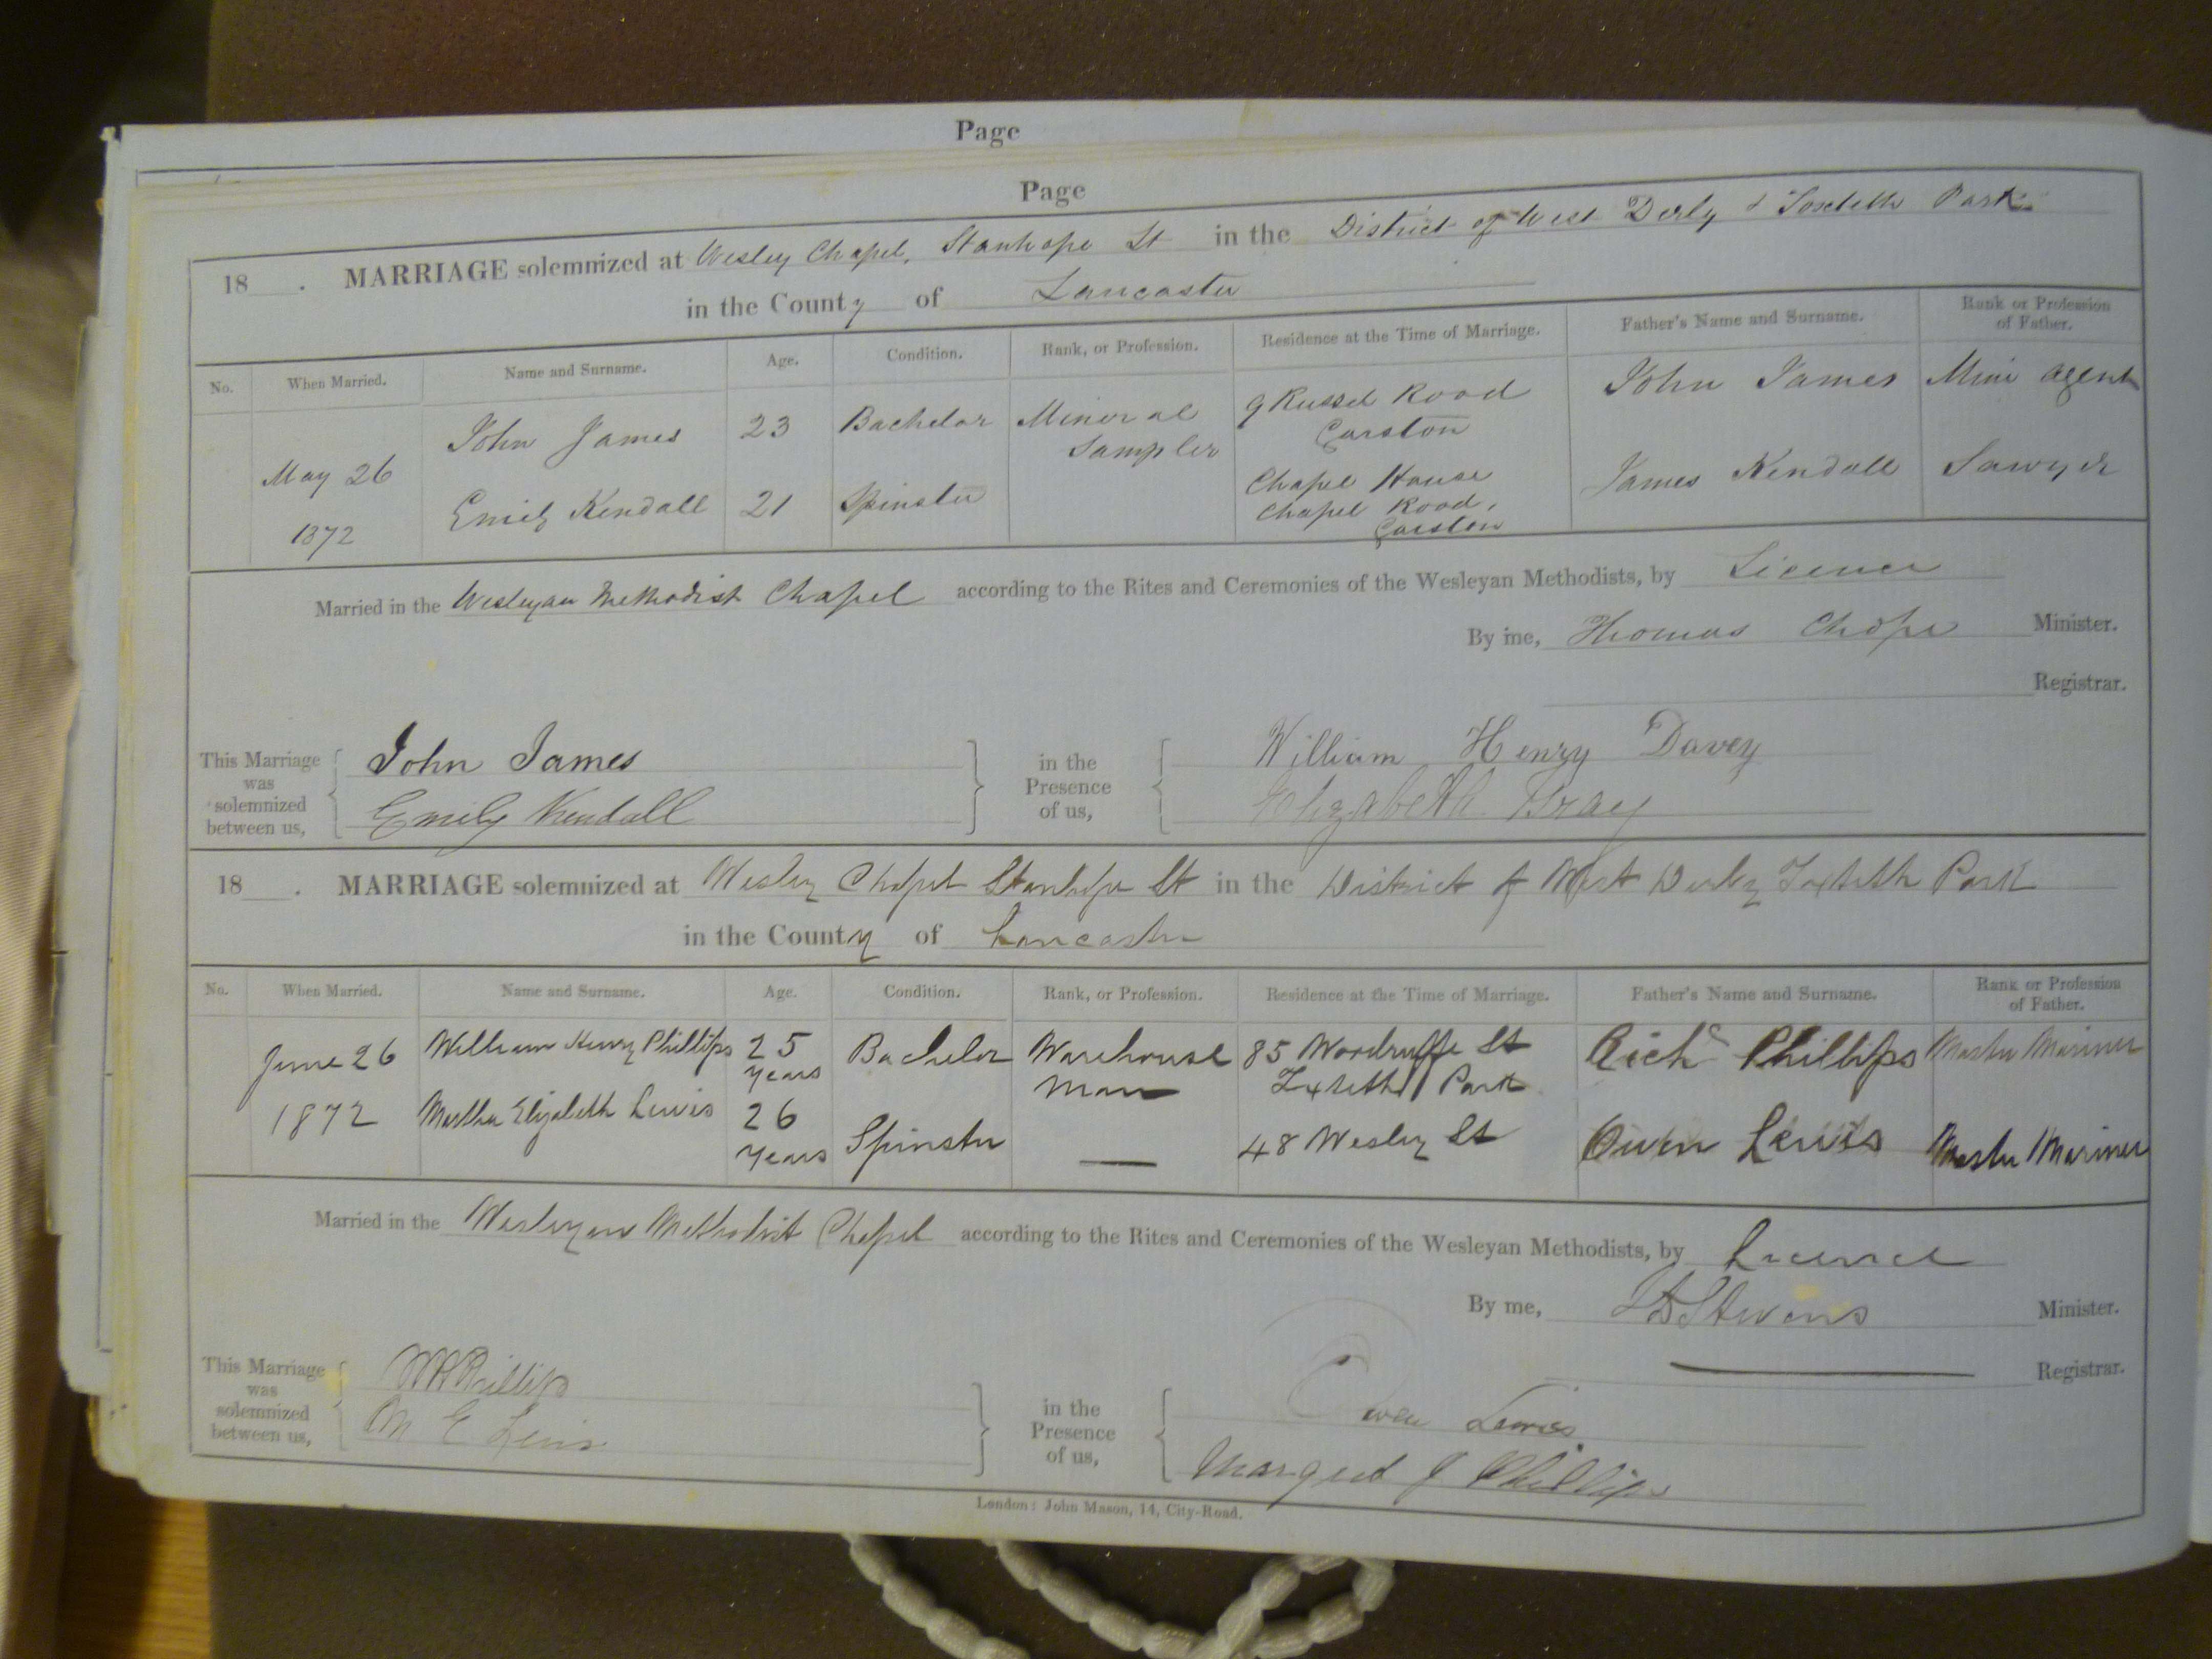 Page
Page
18 . MARRIAGE solemnized at Wesley Chapel, Stanhope St in the District of West Derby & Toxteth Park
in the County of Lancaster
No. When Married. Name and Surname. Age. Condition. Rank, or Profession. Residence at the Time of Marriage. Father's Name and Surname. Rank or Profession of Father.
May 26 1872
John James 23 Bachelor Mineral Sampler 9 Russel Road Garston John James Mine Agent
Emily Kendall 21 Spinster Chapel House Chapel Road, Garston James Kendall Sawyer
Married in the Wesleyan Methodist Chapel according to the Rites and Ceremonies of the Wesleyan Methodists, by Licence
By me, Thomas Chope Minister.
Registrar.
This Marriage was solemnized between us,
John James
Emily Kendall
in the Presence of us,
William Henry Davey
Elizabeth Bray
18 . MARRIAGE solemnized at Wesley Chapel Stanhope St in the District of West Derby Toxteth Park
in the County of Lancaster
No. When Married. Name and Surname. Age. Condition. Rank, or Profession. Residence at the Time of Marriage. Father's Name and Surname. Rank or Profession of Father.
June 26 1872
William Henry Phillips 25 years Bachelor Warehouse man 85 Woodruffe St Toxteth Park Richd Phillips Master Mariner
Martha Elizabeth Lewis 26 years Spinster — 48 Wesley St Owen Lewis Master Mariner
Married in the Wesleyan Methodist Chapel according to the Rites and Ceremonies of the Wesleyan Methodists, by Licence
By me, Stevens Minister.
Registrar.
This Marriage was solemnized between us,
WH Phillips
M E Lewis
in the Presence of us,
Owen Lewis
Margret J Phillips
London: John Mason, 14, City-Road.